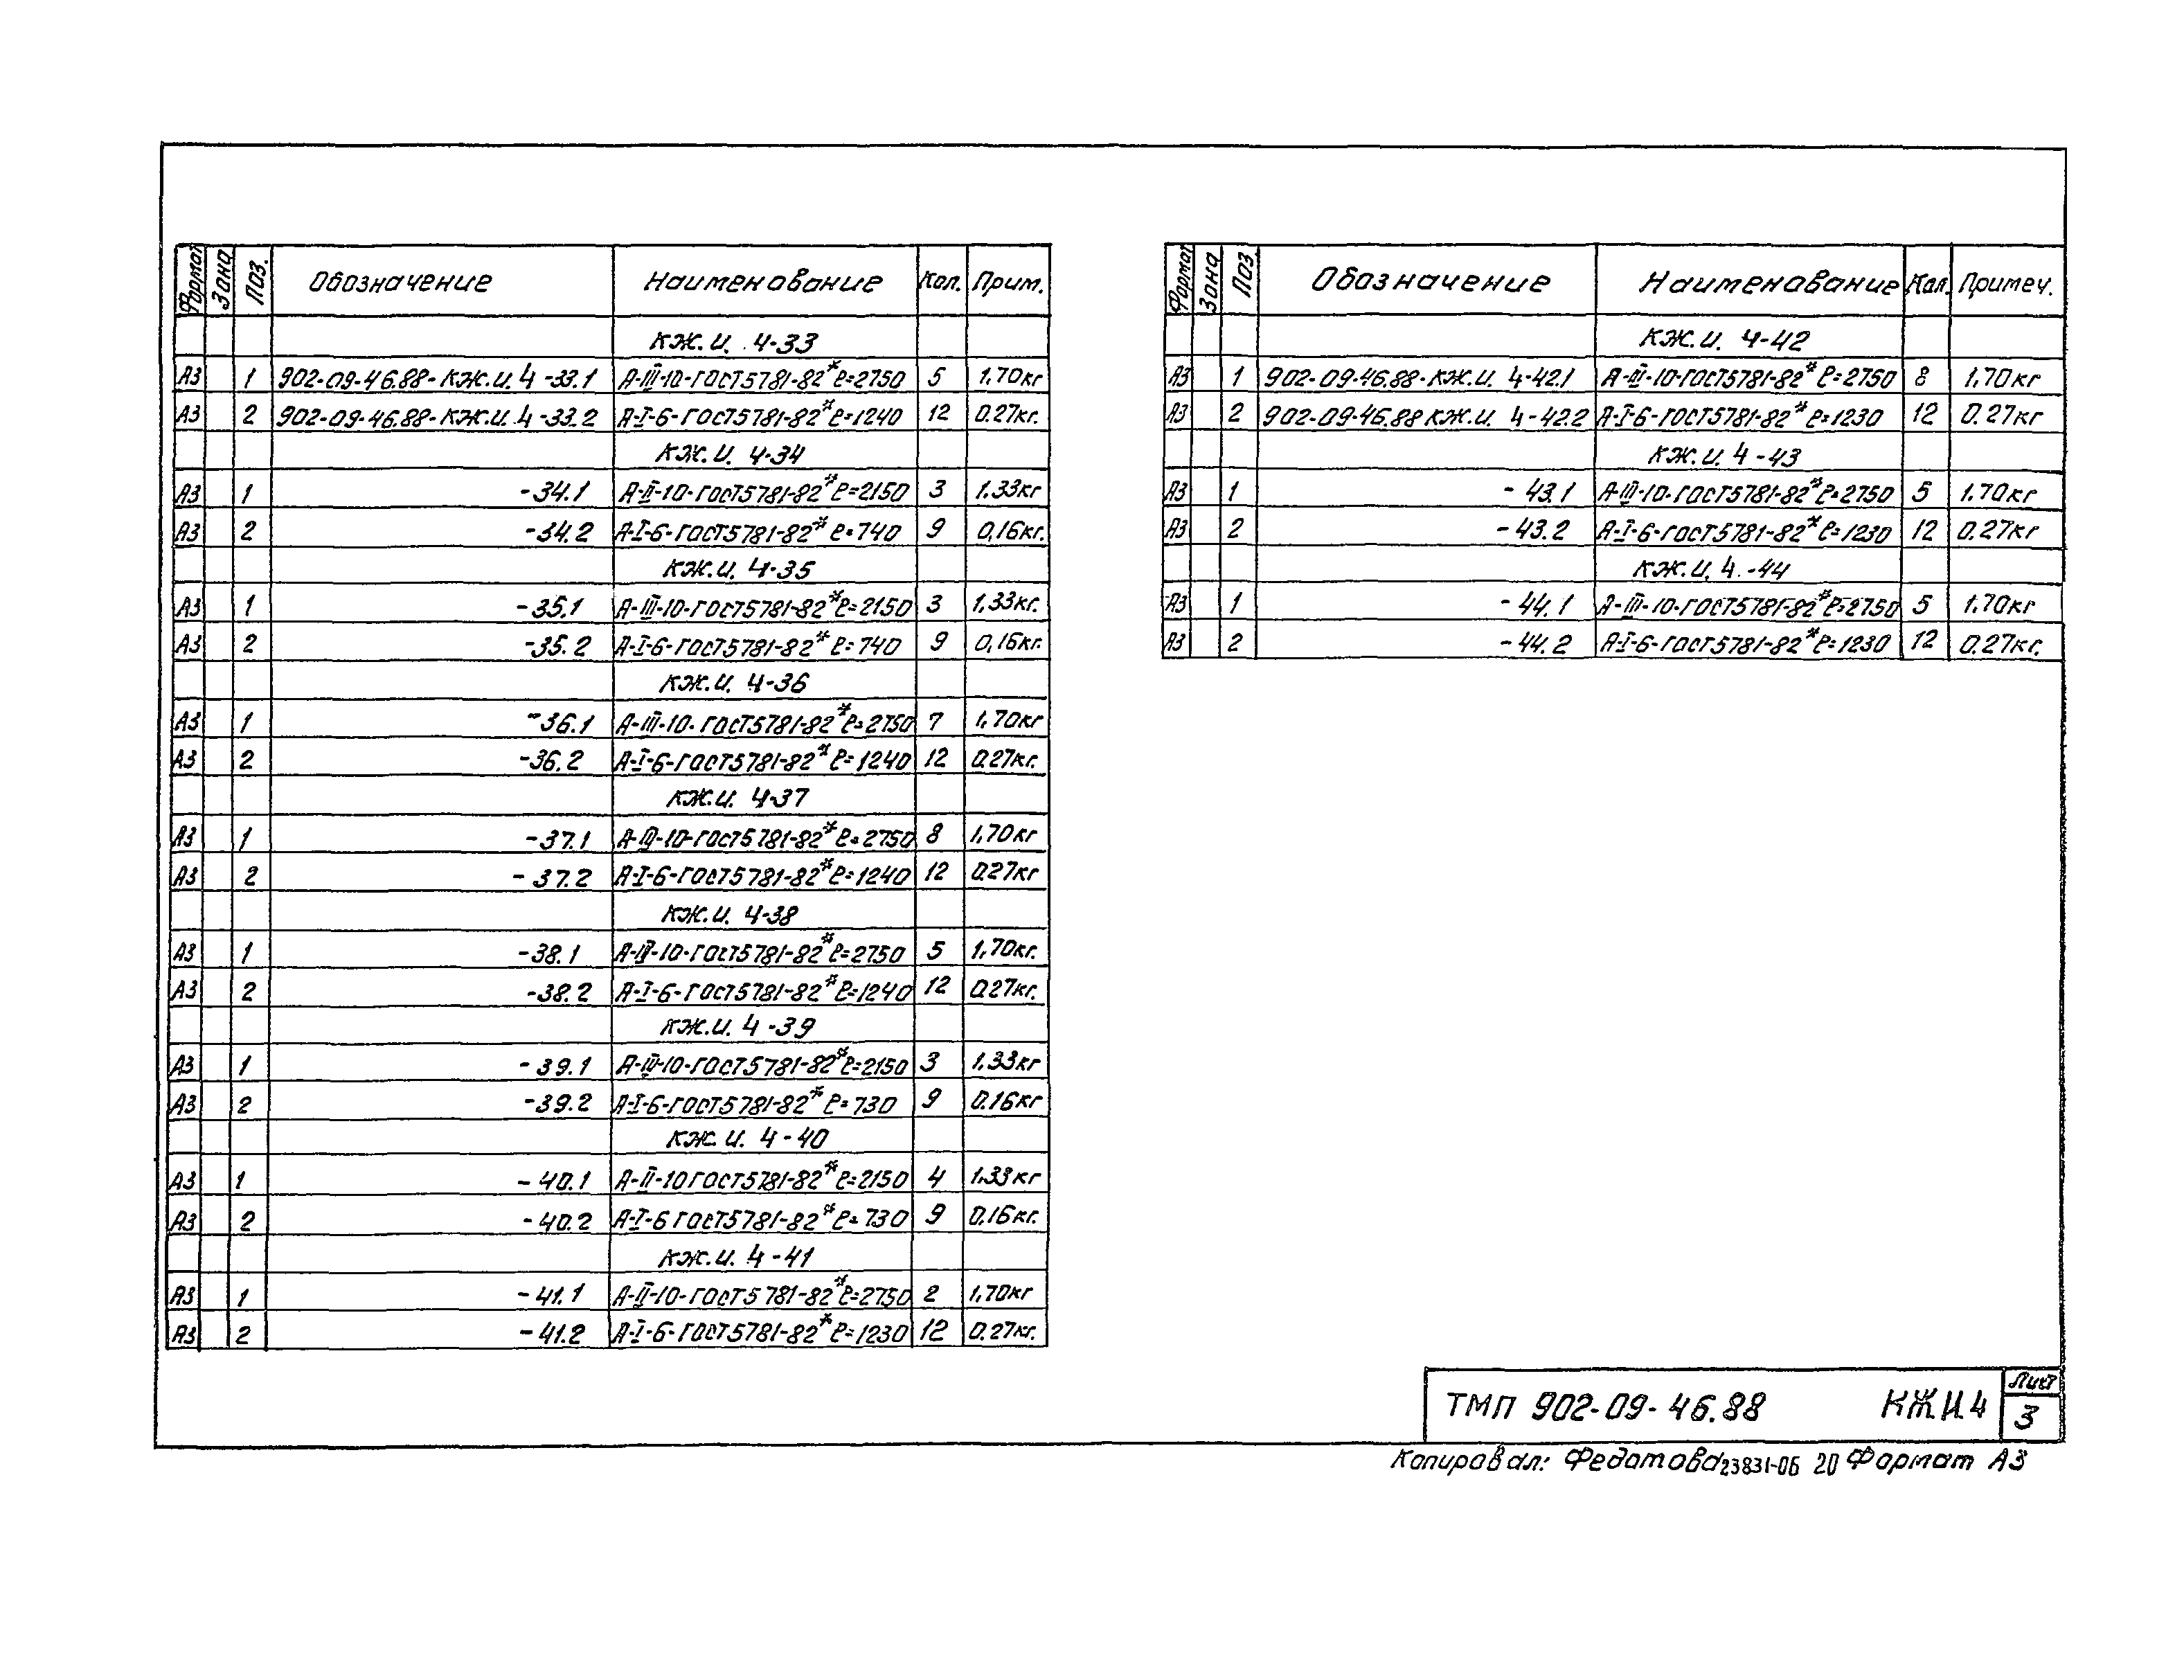 Формат Зона Поз. Обозначение Наименование Кол. Прим.
КЖ.И. 4-33
А3 1 902-09-46.88-КЖ.И. 4-33.1 А-III-10-ГОСТ5781-82* ℓ=2750 5 1,70кг
А3 2 902-09-46.88-КЖ.И. 4-33.2 А-I-6-ГОСТ5781-82* ℓ=1240 12 0.27кг.
КЖ.И. 4-34
А3 1 -34.1 А-II-10-ГОСТ5781-82* ℓ=2150 3 1.33кг
А3 2 -34.2 А-I-6-ГОСТ5781-82* ℓ=740 9 0,16кг.
КЖ.И. 4-35
А3 1 -35.1 А-III-10-ГОСТ5781-82* ℓ=2150 3 1,33кг.
А3 2 -35.2 А-I-6-ГОСТ5781-82* ℓ=740 9 0,16кг.
КЖ.И. 4-36
А3 1 -36.1 А-III-10-ГОСТ5781-82* ℓ=2750 7 1,70кг
А3 2 -36.2 А-I-6-ГОСТ5781-82* ℓ=1240 12 0.27кг.
КЖ.И. 4-37
А3 1 -37.1 А-III-10-ГОСТ5781-82* ℓ=2750 8 1,70кг
А3 2 -37.2 А-I-6-ГОСТ5781-82* ℓ=1240 12 0.27кг
КЖ.И. 4-38
А3 1 -38.1 А-III-10-ГОСТ5781-82* ℓ=2750 5 1,70кг.
А3 2 -38.2 А-I-6-ГОСТ5781-82* ℓ=1240 12 0.27кг.
КЖ.И. 4-39
А3 1 -39.1 А-III-10-ГОСТ5781-82* ℓ=2150 3 1,33кг
А3 2 -39.2 А-I-6-ГОСТ5781-82* ℓ=730 9 0.16кг
КЖ.И. 4-40
А3 1 -40.1 А-II-10 ГОСТ5781-82* ℓ=2150 4 1,33кг
А3 2 -40.2 А-I-6 ГОСТ5781-82* ℓ=730 9 0,16кг.
КЖ.И. 4-41
А3 1 -41.1 А-II-10-ГОСТ5781-82* ℓ=2750 2 1,70кг
А3 2 -41.2 А-I-6-ГОСТ5781-82* ℓ=1230 12 0.27кг.
Формат Зона Поз Обозначение Наименование Кол. Примеч.
КЖ.И. 4-42
А3 1 902-09-46.88-КЖ.И. 4-42.1 А-III-10-ГОСТ5781-82* ℓ=2750 8 1,70кг
А3 2 902-09-46.88 КЖ.И. 4-42.2 А-I-6-ГОСТ5781-82* ℓ=1230 12 0.27кг
КЖ.И. 4-43
А3 1 -43.1 А-III-10-ГОСТ5781-82* ℓ=2750 5 1.70кг
А3 2 -43.2 А-I-6-ГОСТ5781-82* ℓ=1230 12 0.27кг
КЖ.И. 4.-44
А3 1 -44.1 А-III-10-ГОСТ5781-82* ℓ=2750 5 1,70кг
А3 2 -44.2 А-I-6-ГОСТ5781-82* ℓ=1230 12 0.27кг.
ТМП 902-09-46.88 КЖ.И.4 Лист 3
Копировал: Федотова 23831-06 20 Формат А3